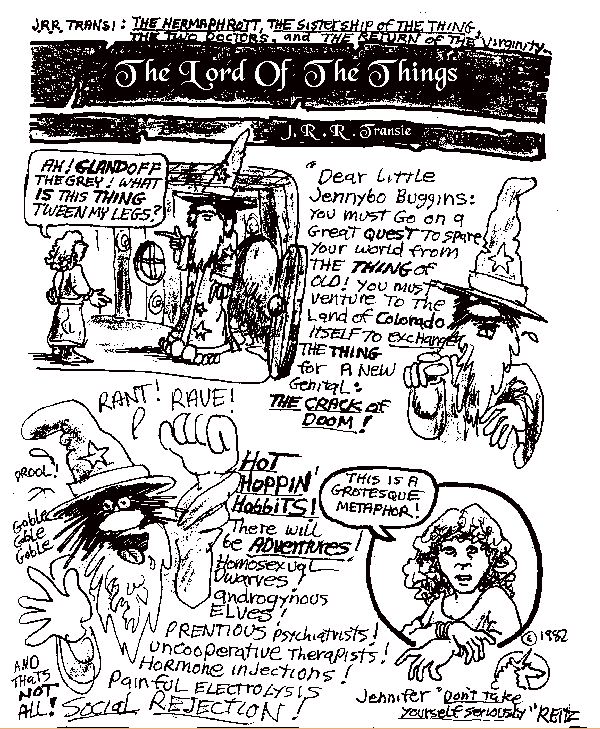 J.R.R. TRANSI: THE HERMAPHROTT, THE SISTERSHIP OF THE THING,
THE TWO DOCTORS, and THE RETURN OF THE Virginity
The Lord Of The Things
J. R. R. Transie
AH! GLANDOFF
THE GREY! WHAT
IS THIS THING
TWEEN MY LEGS?
"Dear Little
Jennybo Buggins:
You must Go on a
Great QUEST To Spare
Your world from
THE THING of
OLD! You must
venture To The
Land of Colorado
ITSELF To Exchange
THE THING
for A New
Genital:
THE CRACK of
DOOM!
RANT! RAVE!
DROOL!
Goble
Goble
Goble
HOT
HOPPIN'
HobbITS!
There will
be ADVENTURES!
Homosexual
Dwarves!
androgynous
ELVES!
PRENTIOUS Psychiatrists!
uncooperative Therapists!
Hormone injections!
PainfuL ELECTROLYSIS
SOCIAL REJECTION!
AND
THATS
NOT
ALL!
THIS IS A
GROTESQUE
METAPHOR!
© 1982
Jennifer "Don't Take
yourself seriously" REITZ